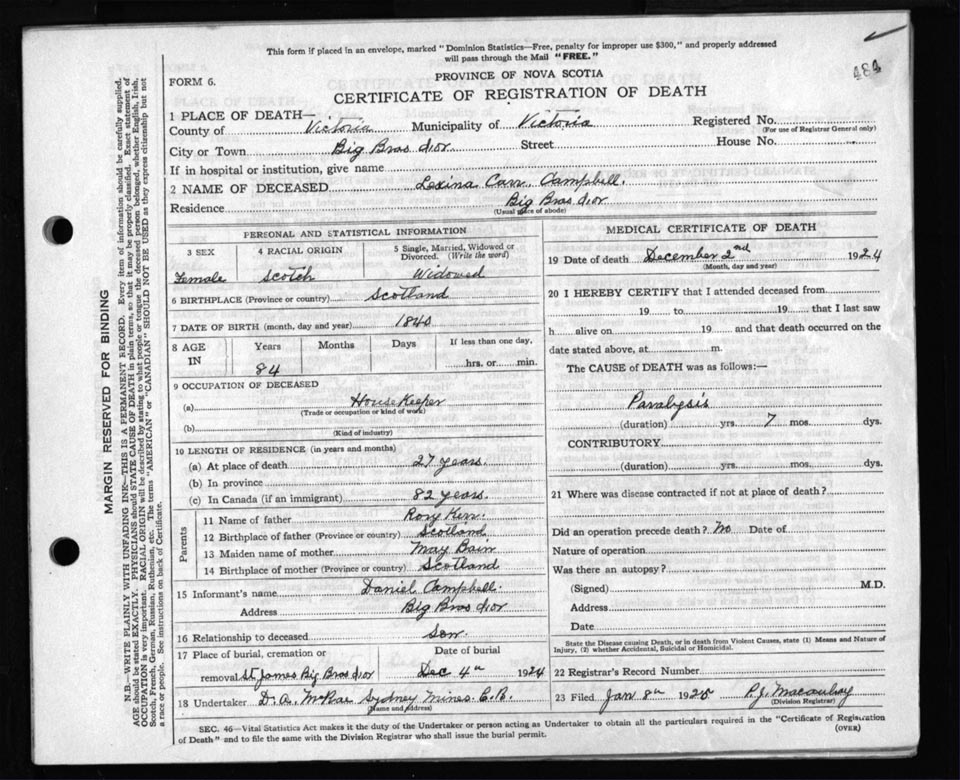 This form if placed in an envelope, marked "Dominion Statistics—Free, penalty for improper use $300," and properly addressed
will pass through the Mail "FREE."
484
FORM 6.
PROVINCE OF NOVA SCOTIA
CERTIFICATE OF REGISTRATION OF DEATH
1 PLACE OF DEATH—
County of Victoria Municipality of Victoria Registered No.
(For use of Registrar General only)
City or Town Big Bras d'or Street House No.
If in hospital or institution, give name
2 NAME OF DECEASED Lexina Carr Campbell.
Residence Big Bras d'or
(Usual place of abode)
PERSONAL AND STATISTICAL INFORMATION
3 SEX 4 RACIAL ORIGIN 5 Single, Married, Widowed or
Divorced. (Write the word)
Female Scotch Widowed
6 BIRTHPLACE (Province or country) Scotland
7 DATE OF BIRTH (month, day and year) 1840
8 AGE IN Years Months Days If less than one day,
84 hrs. or min.
9 OCCUPATION OF DECEASED
(a) House Keeper
(Trade or occupation or kind of work)
(b)
(Kind of industry)
10 LENGTH OF RESIDENCE (in years and months)
(a) At place of death 27 years.
(b) In province
(c) In Canada (if an immigrant) 82 years.
Parents
11 Name of father Rory Kerr
12 Birthplace of father (Province or country) Scotland
13 Maiden name of mother May Bain
14 Birthplace of mother (Province or country) Scotland
15 Informant's name Daniel Campbell
Address Big Bras d'or
16 Relationship to deceased Son
17 Place of burial, cremation or Date of burial
removal St James Big Bras d'or Dec 4th 1924
18 Undertaker D. A. McRae Sydney Mines C.B.
(Name and address)
MEDICAL CERTIFICATE OF DEATH
19 Date of death December 2nd 1924
(Month, day and year)
20 I HEREBY CERTIFY that I attended deceased from
19 to 19 that I last saw
h alive on 19 and that death occurred on the
date stated above, at m.
The CAUSE of DEATH was as follows:—
Paralysis
(duration) yrs. 7 mos. dys.
CONTRIBUTORY
(duration) yrs. mos. dys.
21 Where was disease contracted if not at place of death?
Did an operation precede death? No Date of
Nature of operation
Was there an autopsy?
(Signed) M.D.
Address
Date
State the Disease causing Death, or in death from Violent Causes, state (1) Means and Nature of
Injury, (2) whether Accidental, Suicidal or Homicidal.
22 Registrar's Record Number
23 Filed Jan 8th 1925 P.J. Macaulay
(Division Registrar)
SEC. 46—Vital Statistics Act makes it the duty of the Undertaker or person acting as Undertaker to obtain all the particulars required in the "Certificate of Registration
of Death" and to file the same with the Division Registrar who shall issue the burial permit.
(OVER)
MARGIN RESERVED FOR BINDING
N.B.—WRITE PLAINLY WITH UNFADING INK—THIS IS A PERMANENT RECORD. Every item of information should be carefully supplied.
AGE should be stated EXACTLY. PHYSICIANS should STATE CAUSE OF DEATH in plain terms, so that it may be properly classified. Exact statement of
OCCUPATION is very important. RACIAL ORIGIN will be described by stating to what people or tongue the deceased person belonged, whether English, Irish,
Scotch, French, German, Russian, Ruthenian, etc. The terms "AMERICAN" or "CANADIAN" SHOULD NOT BE USED as they express citizenship but not
a race or people. See instructions on back of Certificate.